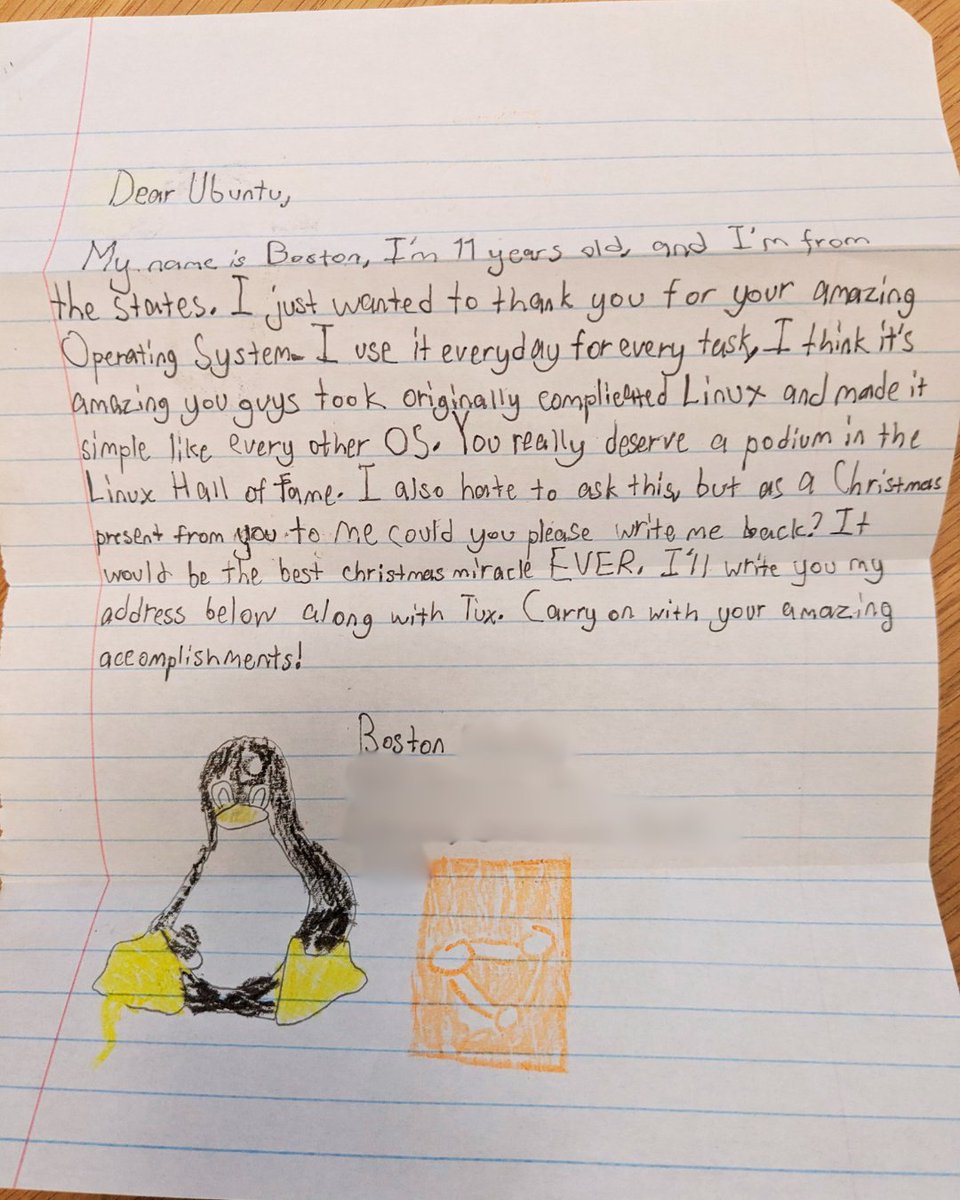 Dear Ubuntu,
My name is Boston, I'm 11 years old, and I'm from
the States. I just wanted to thank you for your amazing
Operating System. I use it everyday for every task, I think it's
amazing you guys took originally complicated Linux and made it
simple like every other OS. You really deserve a podium in the
Linux Hall of fame. I also hate to ask this, but as a Christmas
present from you to me could you please write me back? It
would be the best christmas miracle EVER. I'll write you my
address below along with Tux. Carry on with your amazing
accomplishments!
Boston